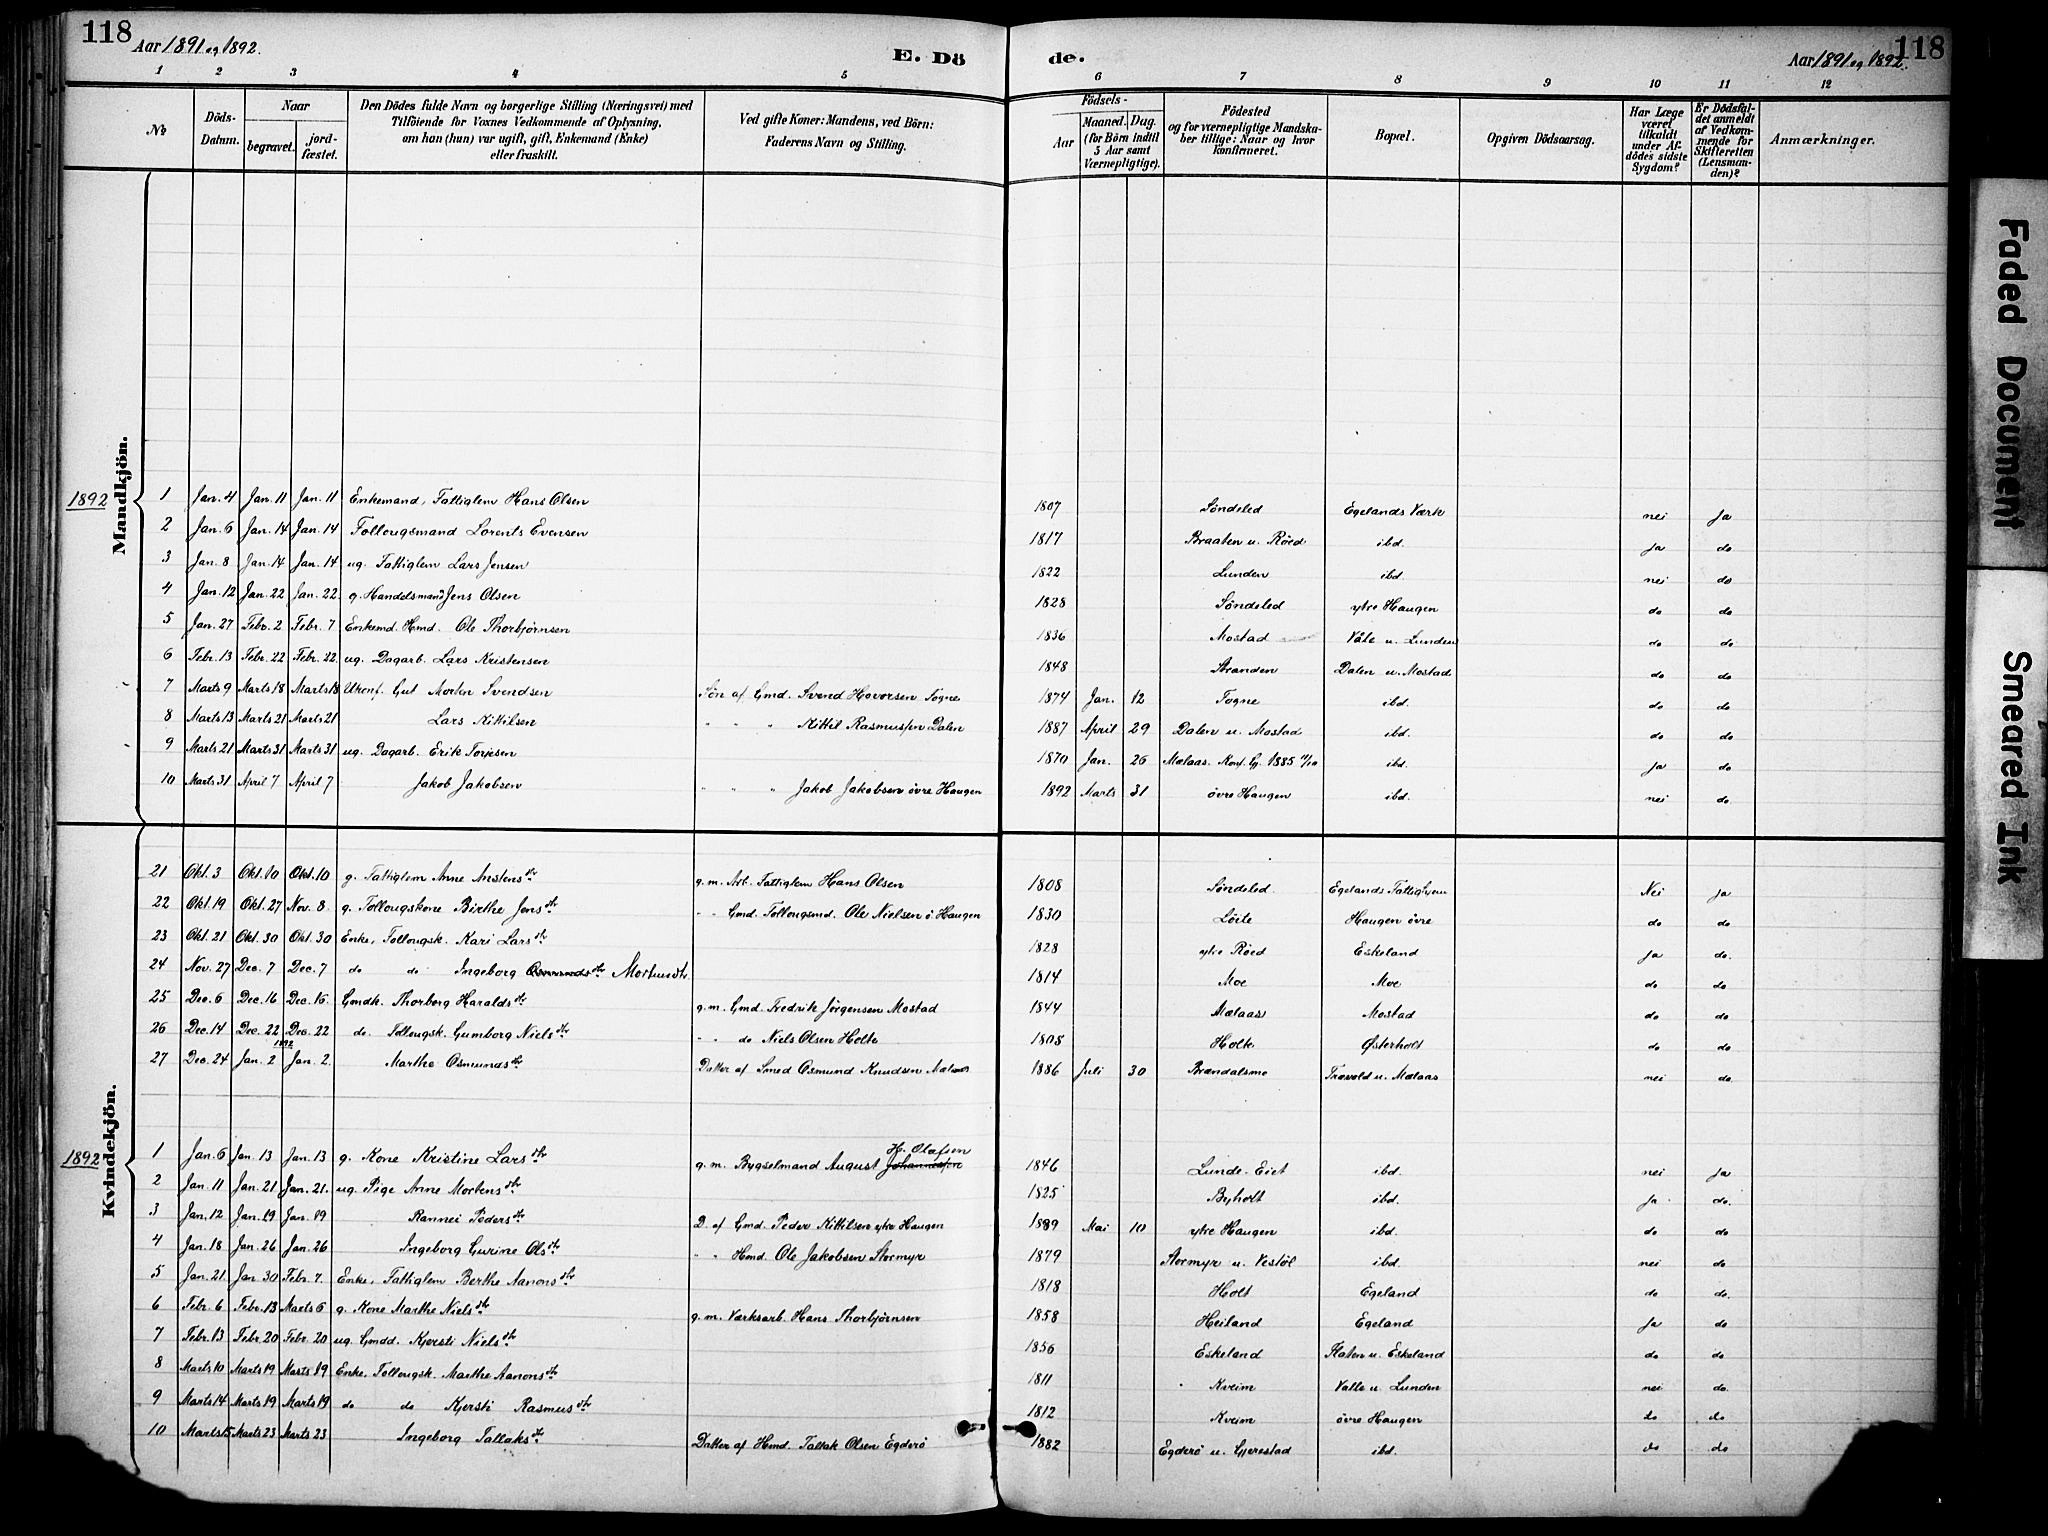 118
Aar 1891 og 1892.
E. Dö
de.
Aar 1891 og 1892.
118
1 2 3 4 5 6 7 8 9 10 11 12
No
Döds-Datum.
Naar
begravet.
jord-fæstet.
Den Dödes fulde Navn og borgerlige Stilling (Næringsvei) med
Tilföiende for Voxnes Vedkommende af Oplysning,
om han (hun) var ugift, gift, Enkemand (Enke)
eller fraskilt.
Ved gifte Koner: Mandens, ved Börn:
Faderens Navn og Stilling.
Födsels-
Aar
Maaned. Dag.
(for Börn indtil
5 Aar samt
Værnepligtige).
Födested
og for værnepligtige Mandska-
ber tillige: Naar og hvor
konfirmeret.
Bopæl.
Opgiven Dödsaarsag.
Har Læge
været
tilkaldt
under Af-
dödes sidste
Sygdom?
Er Dödsfal-
det anmeldt
af Vedkom-
mende for
Skifteretten
(Lensman-
den)?
Anmærkninger.
Mandkjön.
1892
1 Jan. 4 Jan. 11 Jan. 11 Enkemand, Fattiglem Hans Olsen 1807 Söndeled Egelands Værk nei ja
2 Jan. 6 Jan. 14 Jan. 14 Follougsmand Lorents Evensen 1817 Braaten u. Röed ibd. ja do
3 Jan. 8 Jan. 14 Jan. 14 ug. Fattiglem Lars Jensen 1822 Lunden ibd. nei do
4 Jan. 12 Jan. 22 Jan. 22 g. Handelsmand Jens Olsen 1828 Söndeled ytre Haugen do do
5 Jan. 27 Febr. 2 Febr. 7 Enkemd. Hmd. Ole Thorbjørnsen 1836 Mostad Valle u. Lunden do do
6 Febr. 13 Febr. 22 Febr. 22 ug. Dagarb. Lars Kristensen 1848 Stranden Dalen u. Mostad do do
7 Marts 9 Marts 18 Marts 18 Ukonf. Gut Morten Svendsen Søn af Gmd. Svend Hovorsen Fogne 1874 Jan. 12 Fogne ibd. do do
8 Marts 13 Marts 21 Marts 21 Lars Kittilsen " " " Kittil Rasmussen Dalen 1887 April 29 Dalen u. Mostad ibd. do do
9 Marts 21 Marts 31 Marts 31 ug. Dagarb. Erik Torjesen 1870 Jan. 26 Mælaas. Konf. G. 1885 ibd. ja do
10 Marts 31 April 7 April 7 Jakob Jakobsen " " " Jakob Jakobsen övre Haugen 1892 Marts 31 övre Haugen ibd. nei do
Kvindekjön.
21 Okt. 3 Okt. 10 Okt. 10 g. Fattiglem Anne Anstensdtr g. m. Arb. Fattiglem Hans Olsen 1808 Söndeled Egelands Fattighjem Nei ja
22 Okt. 19 Okt. 27 Nov. 8 g. Follougskone Birthe Jensdtr " " Gmd. Follougsmd. Ole Nielsen ö. Haugen 1830 Löite Haugen övre do do
23 Okt. 21 Okt. 30 Okt. 30 Enke, Follougsk. Kari Larsdtr 1828 ytre Röed Eskeland ja do.
24 Nov. 27 Dec. 7 Dec. 7 do do Ingeborg Osmundsdtr Mortensdtr. 1814 Moe Moe do do
25 Dec. 6 Dec. 16 Dec. 16. Gmdk. Thorborg Haraldsdtr g. m. Gmd. Fredrik Jørgensen Mostad 1844 Mælaas Mostad do do
26 Dec. 14 Dec. 22 Dec. 22 do Follougsk. Gumborg Nielsdtr " " do Niels Olsen Holte 1808 Holte Østerholt do do
27 Dec. 24 Jan. 2 1892 Jan. 2. Marthe Osmundsdtr Datter af Smed Osmund Knudsen Mælaas 1886 Juli 30 Brændalsmo Trævold u. Mælaas nei do.
1892
1 Jan. 6 Jan. 13 Jan. 13 g. Kone Kristine Larsdtr g. m. Bygselmand August Johannessen H. Olafsen 1846 Lunde-Eiet ibd. nei ja
2 Jan. 11 Jan. 21 Jan. 21. ug. Pige Anne Mortensdtr 1825 Byholt ibd. ja do.
3 Jan. 12 Jan. 19 Jan. 19 Rannei Pedersdtr D. af Gmd. Peder Kittilsen ytre Haugen 1889 Mai 10 ytre Haugen ibd. do do
4 Jan. 18 Jan. 26 Jan. 26 Ingeborg Gurine Olsdtr " " Hmd. Ole Jakobsen Stormyr 1879 Stormyr u. Vestöl ibd. nei do
5 Jan. 21. Jan 30 Febr. 7. Enke, Fattiglem Berthe Aanonsdtr 1818 Holt Egeland do do.
6 Febr. 6 Febr. 13 Marts 6 g. Kone Marthe Nielsdtr g. m. Værksarb. Hans Thorbjørnsen 1858 Heiland Egeland ja do
7 Febr. 13 Febr. 20 Febr. 20 ug. Gmdd. Kjersti Nielsdtr 1856 Eskeland Flaten u. Eskeland do do
8 Marts 10 Marts 19 Marts 19 Enke, Follougsk. Marthe Aanonsdtr 1811 Kveim Valle u. Lunden nei do.
9 Marts 14 Marts 19 Marts 19 do do Kjersti Rasmusdtr 1812 Kveim övre Haugen do do
10 Marts 15 Marts 23 Marts 23 Ingeborg Tallaksdtr Datter af Hmd. Tallak Olsen Egderö 1882 Egderö u. Gjerestad ibd. do do
Faded Document
Smeared Ink